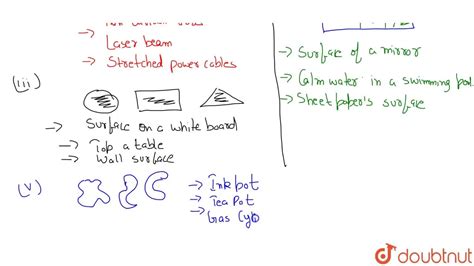 Laser beam
→ Stretched power cables
(iii)
→ Surface on a white board
→ Top a table
→ Wall surface
(v)
→ Ink pot
→ Tea Pot
→ Gas Cy
→ Surface of a mirror
→ Calm water in a swimming
→ Sheet paper's surface
doubtnut